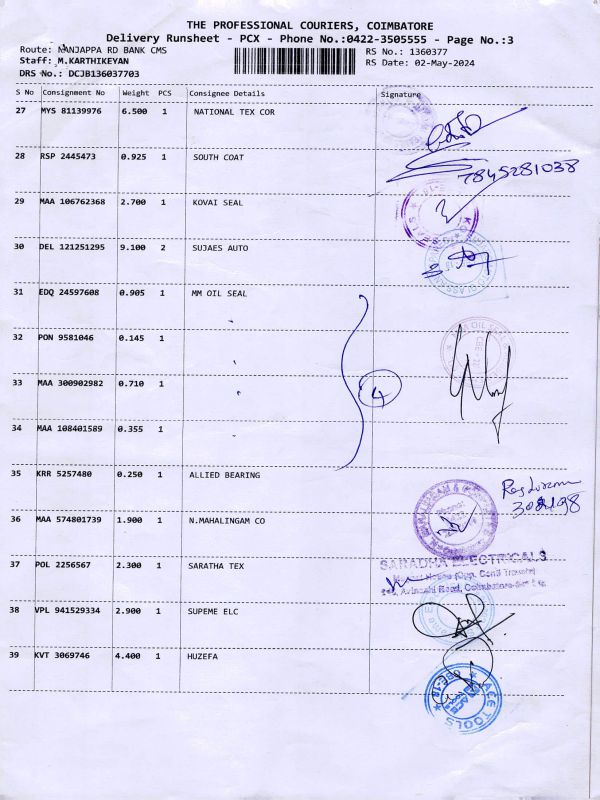 THE PROFESSIONAL COURIERS, COIMBATORE
Delivery Runsheet - PCX - Phone No.:0422-3505555 - Page No.:3
Route: NANJAPPA RD BANK CMS
RS No.: 1360377
Staff: M.KARTHIKEYAN
RS Date: 02-May-2024
DRS No.: DCJB136037703
S No Consignment No Weight PCS Consignee Details Signature
27 MYS 81139976 6.500 1 NATIONAL TEX COR
28 RSP 2445473 0.925 1 SOUTH COAT
7845281038
29 MAA 106762368 2.700 1 KOVAI SEAL
30 DEL 121251295 9.100 2 SUJAES AUTO
31 EDQ 24597608 0.905 1 MM OIL SEAL
32 PON 9581046 0.145 1 "
33 MAA 300902982 0.710 1 "
4
34 MAA 108401589 0.355 1 "
35 KRR 5257480 0.250 1 ALLIED BEARING
36 MAA 574801739 1.900 1 N.MAHALINGAM CO
37 POL 2256567 2.300 1 SARATHA TEX
SARADHA ELECTRICALS
(Opp. Conli Transfe)
Avinashi Road, Coimbatore
38 VPL 941529334 2.900 1 SUPEME ELC
39 KVT 3069746 4.400 1 HUZEFA
ACE TOOLS
CBE-18